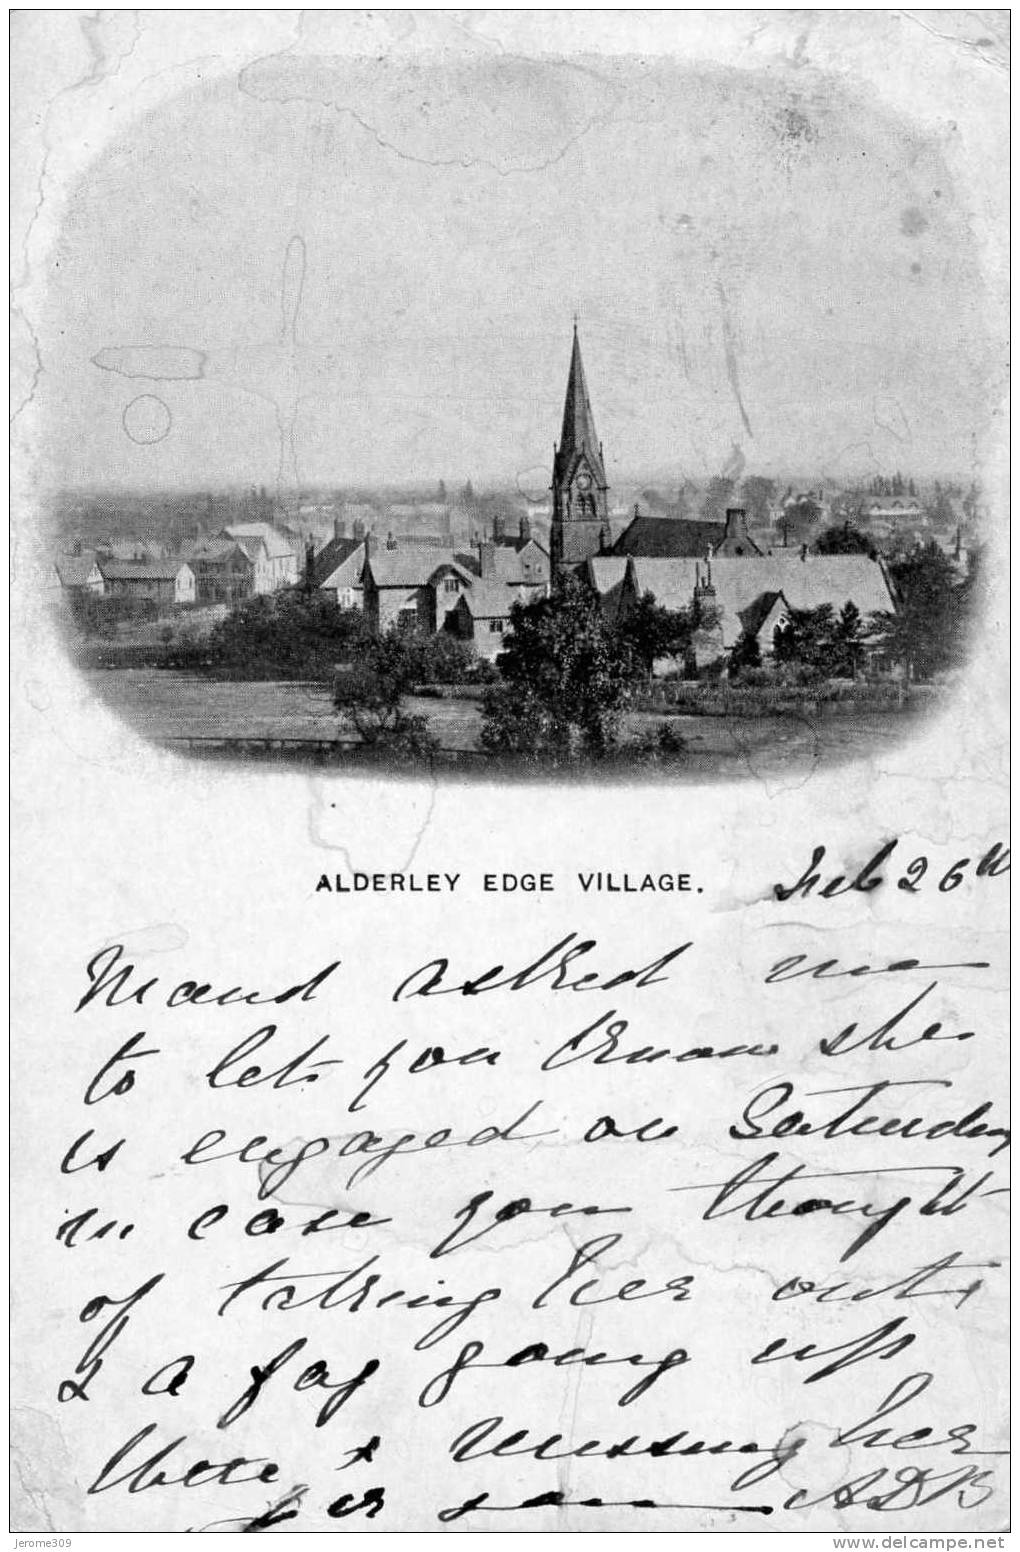 ALDERLEY EDGE VILLAGE.
Feb 26th
Maud asked me
to let you know she
is engaged on Saturday
in case you thought
of taking her out,
& a fag going up
there & missing her
ADB
jerome309
delcampe.net